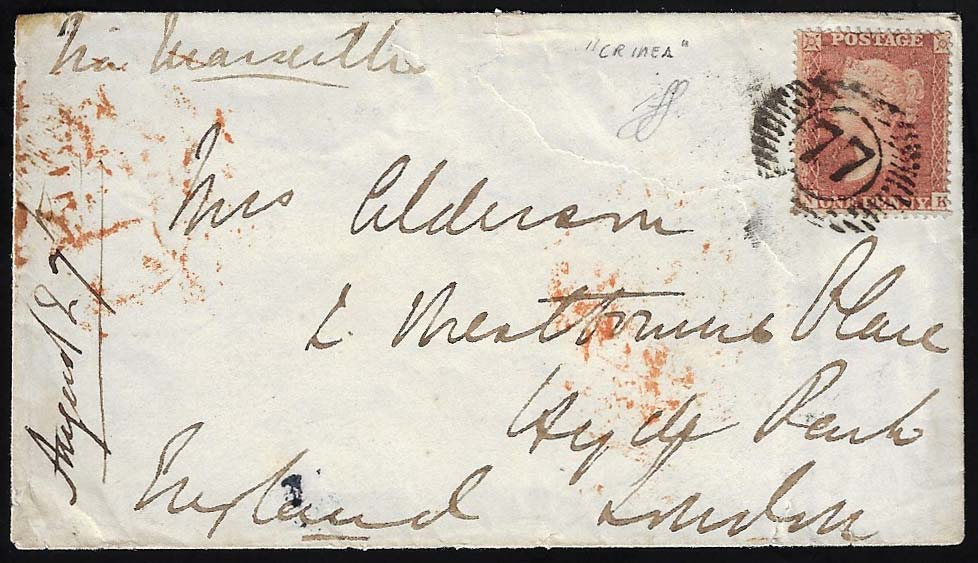 Via Marseille
"CRIMEA"
POSTAGE
77
ONE PENNY K
Mrs Alderson
2 Westbourne Place
Hyde Park
London
England
August 27